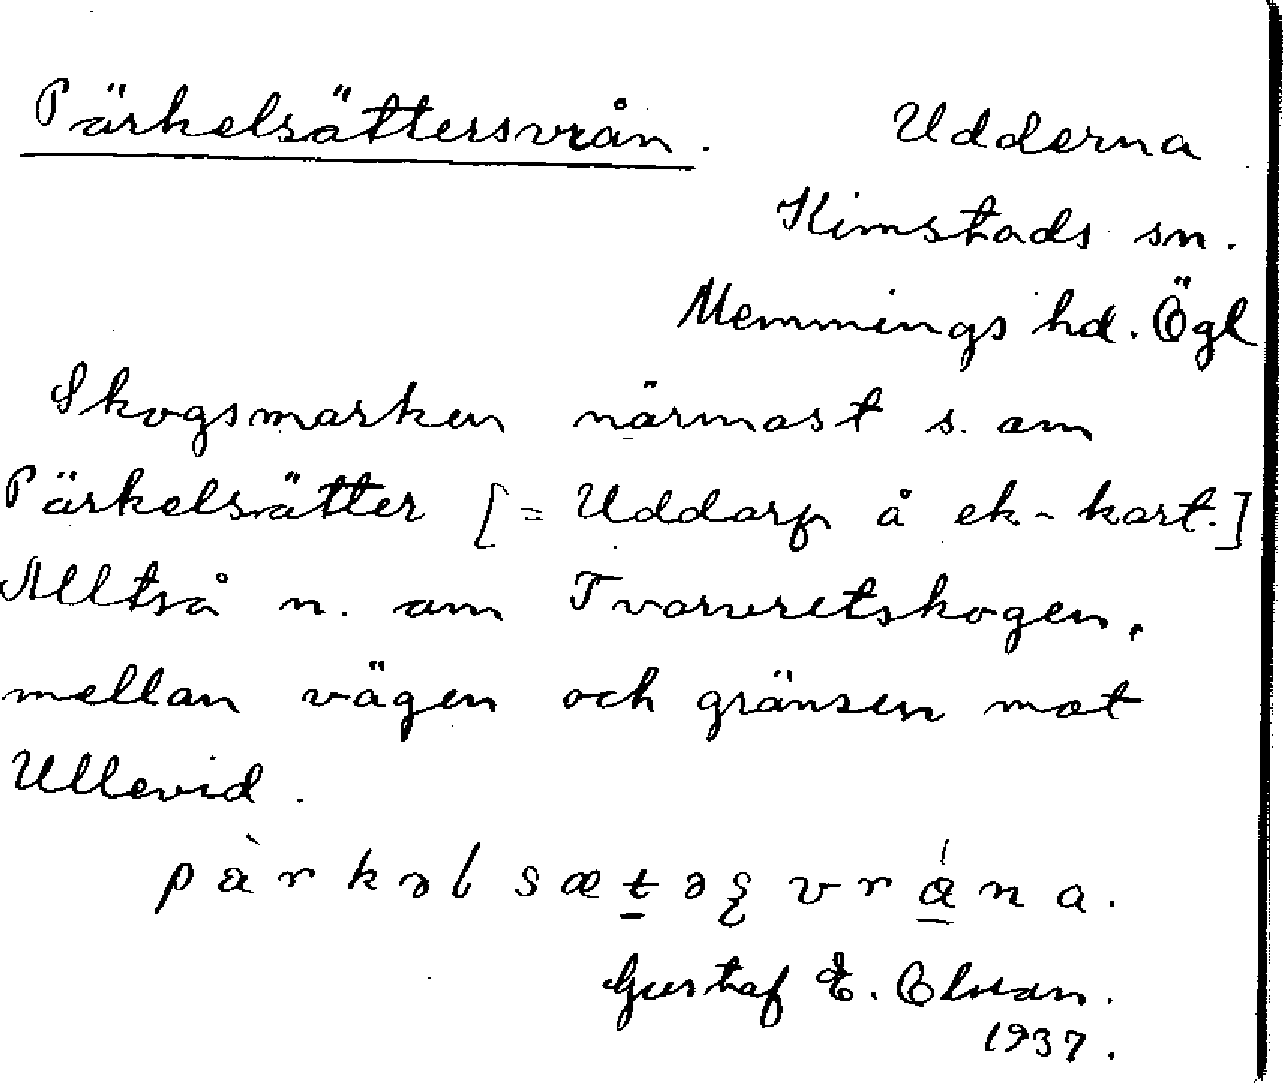 Pärkelsättersvrån.
Udderna
Kimstads sn.
Memmings hd. Ögl
Skogsmarken närmast s. om
Pärkelsätter [= Uddarp å ek-kart.]
Alltså n. om Tvarvretskogen,
mellan vägen och gränsen mot
Ullevid.
Gustaf E. Olson.
1937.